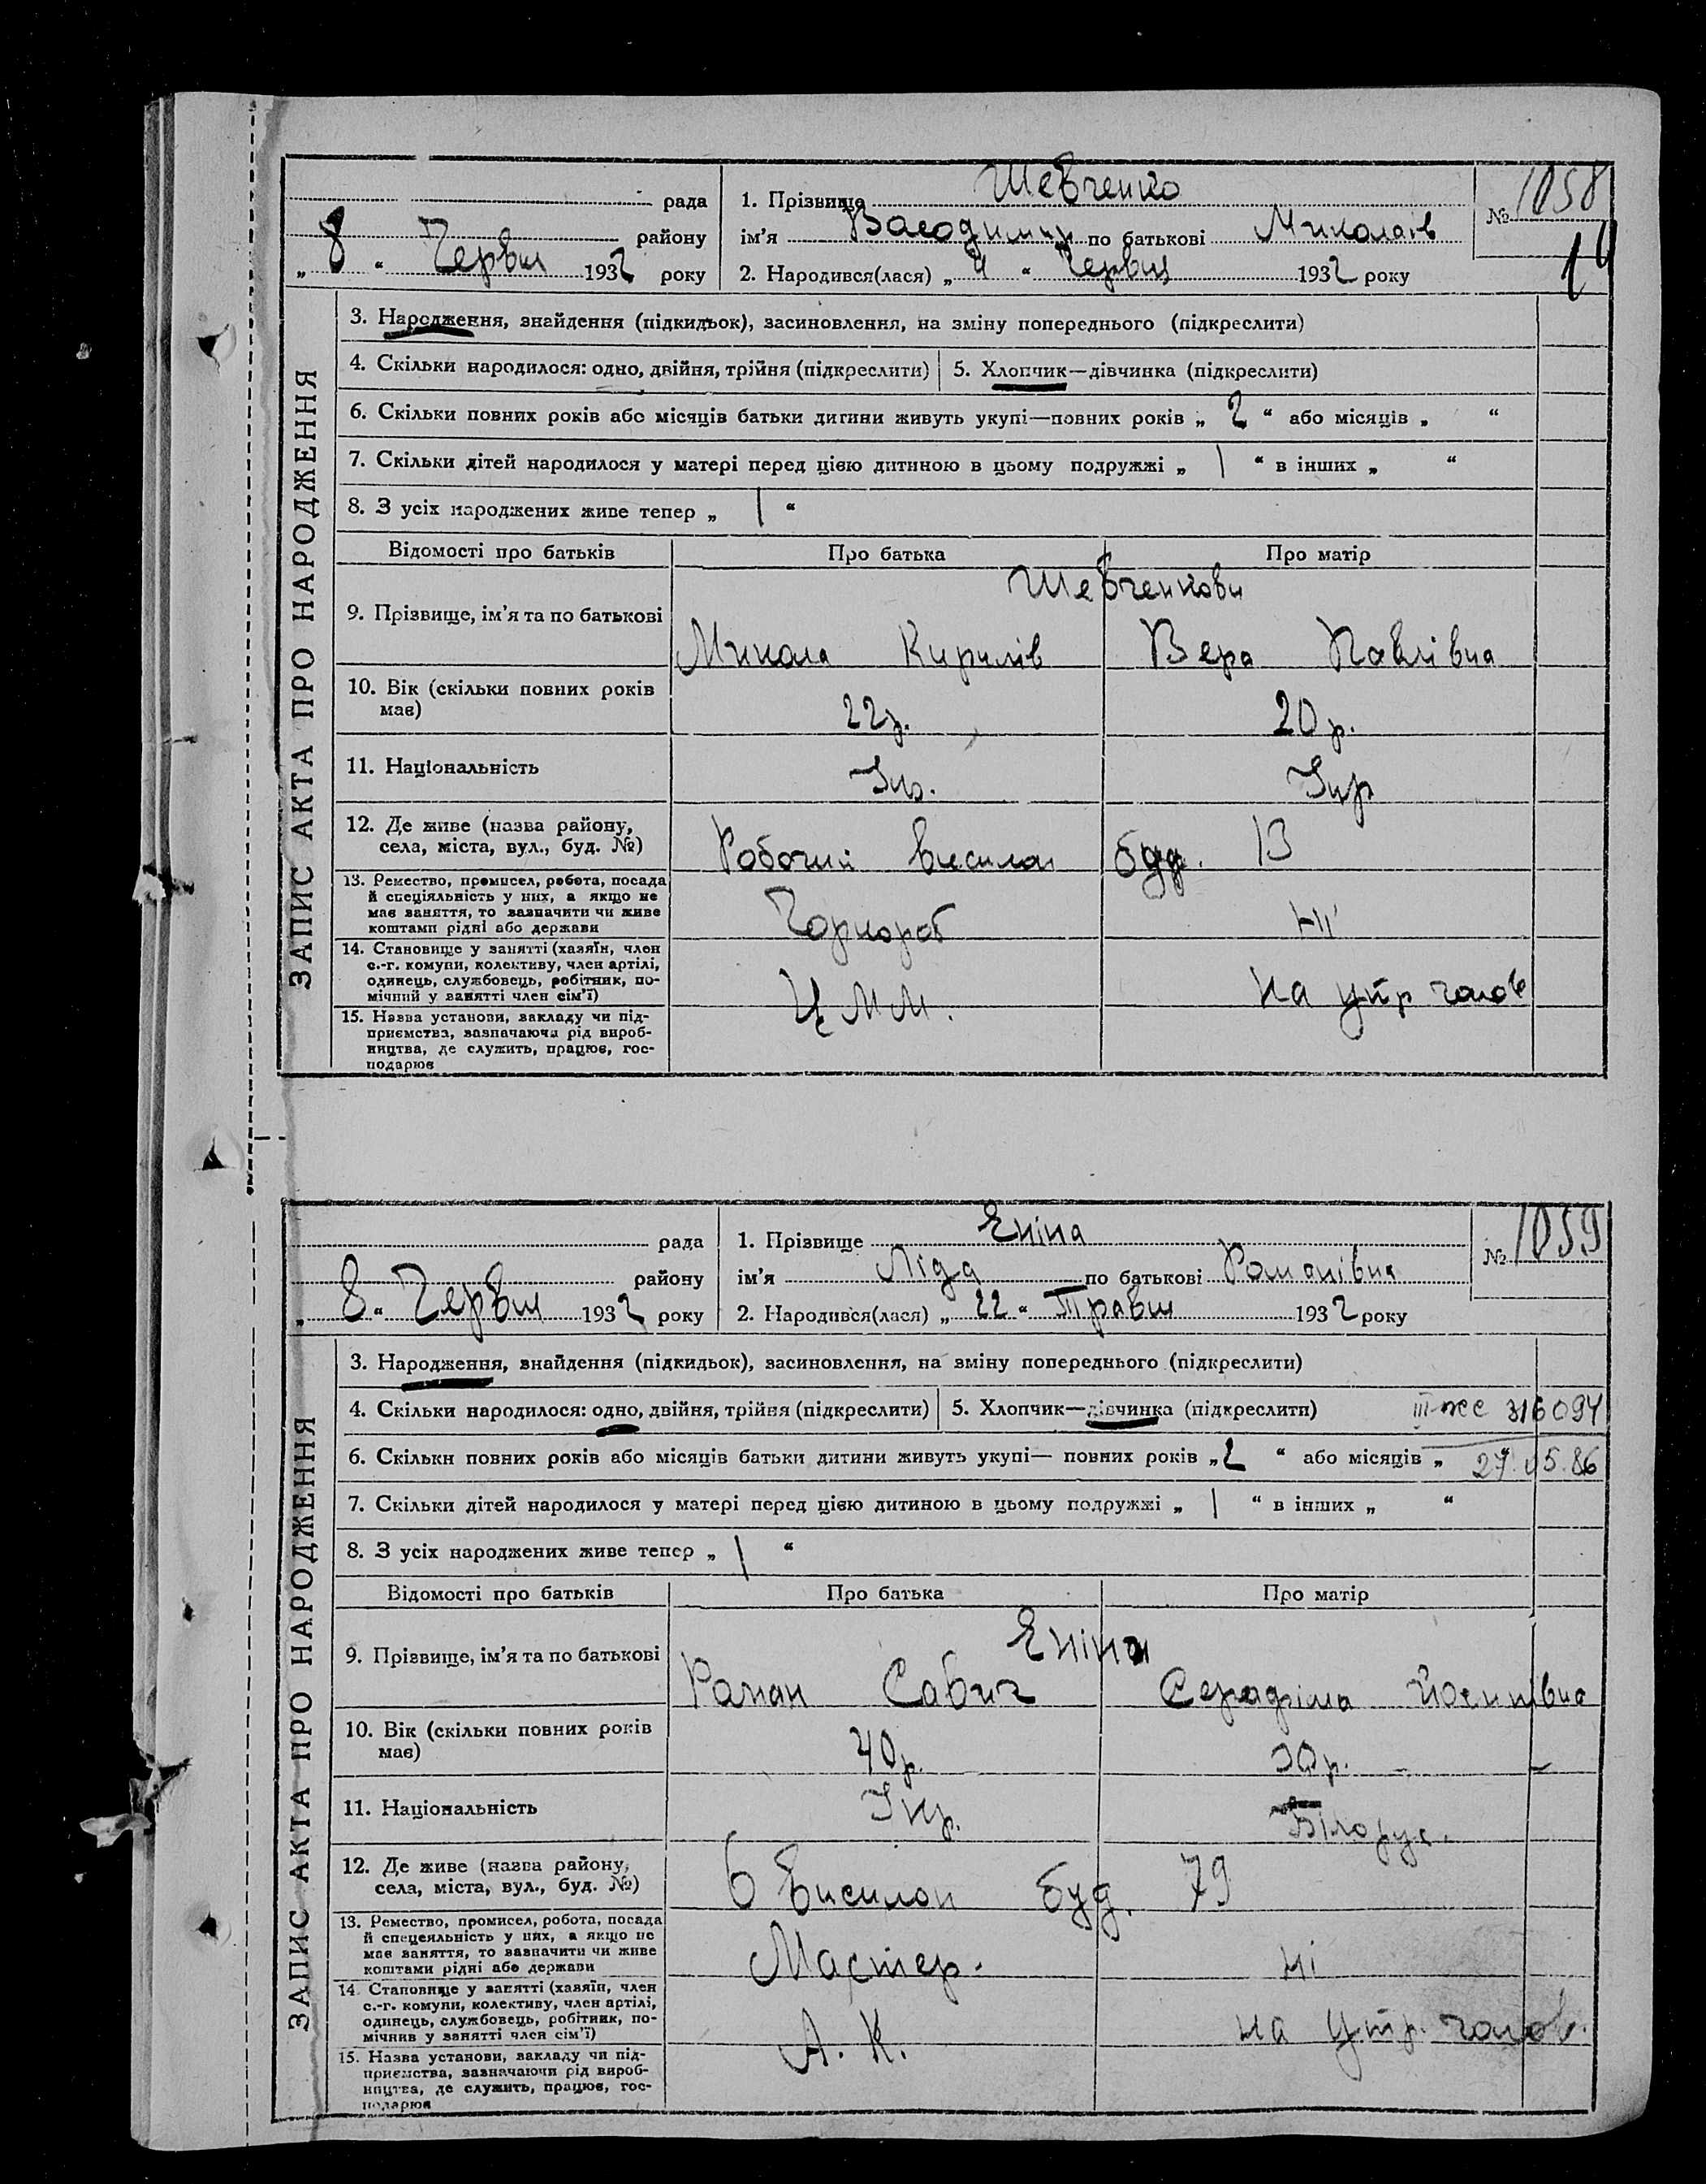 ЗАПИС АКТА ПРО НАРОДЖЕННЯ
рада
району
„ 8 “ Червня 1932 року
1. Прізвище Шевченко
ім’я Володимир по батькові Миколаїв
2. Народився(лася) „ 4 “ Червня 1932 року
№ 1058
14
3. Народження, знайдення (підкидьок), засиновлення, на зміну попереднього (підкреслити)
4. Скільки народилося: одно, двійня, трійня (підкреслити) 5. Хлопчик—дівчинка (підкреслити)
6. Скільки повних років або місяців батьки дитини живуть укупі—повних років „ 2 “ або місяців „ “
7. Скільки дітей народилося у матері перед цією дитиною в цьому подружжі „ 1 “ в інших „ “
8. З усіх народжених живе тепер „ 1 “
Відомості про батьків Про батька Про матір
Шевченкови
9. Прізвище, ім’я та по батькові Микола Кирилів Вера Павлівна
10. Вік (скільки повних років має) 22 р. 20 р.
11. Національність Укр. Укр
12. Де живе (назва району, села, міста, вул., буд. №) Робочий висилок буд. 13
13. Ремество, промисел, робота, посада й спеціяльність у них, а якщо не має заняття, то зазначити чи живе коштами рідні або держави Чорнороб Ні
14. Становище у занятті (хазяїн, член с.-г. комуни, колективу, член артілі, одинець, службовець, робітник, помічний у занятті член сім’ї) на утр чолов
15. Назва установи, закладу чи підприємства, зазначаючи рід виробництва, де служить, працює, господарює Ц М М.
ЗАПИС АКТА ПРО НАРОДЖЕННЯ
рада
району
„ 8 “ Червня 1932 року
1. Прізвище Еніна
ім’я Ліда по батькові Романівна
2. Народився(лася) „ 22 “ Травня 1932 року
№ 1059
3. Народження, знайдення (підкидьок), засиновлення, на зміну попереднього (підкреслити)
4. Скільки народилося: одно, двійня, трійня (підкреслити) 5. Хлопчик—дівчинка (підкреслити) III-жс 316094
6. Скільки повних років або місяців батьки дитини живуть укупі— повних років „ 2 “ або місяців „ “ 27.05.86
7. Скільки дітей народилося у матері перед цією дитиною в цьому подружжі „ 1 “ в інших „ “
8. З усіх народжених живе тепер „ 1 “
Відомості про батьків Про батька Про матір
Еніни
9. Прізвище, ім’я та по батькові Роман Савич Серафіма Йосипівна
10. Вік (скільки повних років має) 40 р. 30 р.
11. Національність Укр. Білорус.
12. Де живе (назва району, села, міста, вул., буд. №) 6 висилок буд. 79
13. Ремество, промисел, робота, посада й спецеяльність у них, а якщо не має заняття, то зазначити чи живе коштами рідні або держави Мастер. ні
14. Становище у занятті (хазяїн, член с.-г. комуни, колективу, член артілі, одинець, службовець, робітник, помічник у занятті член сім’ї) на утр. чолов.
15. Назва установи, закладу чи підприємства, зазначаючи рід виробництва, де служить, працює, господарює А. К.